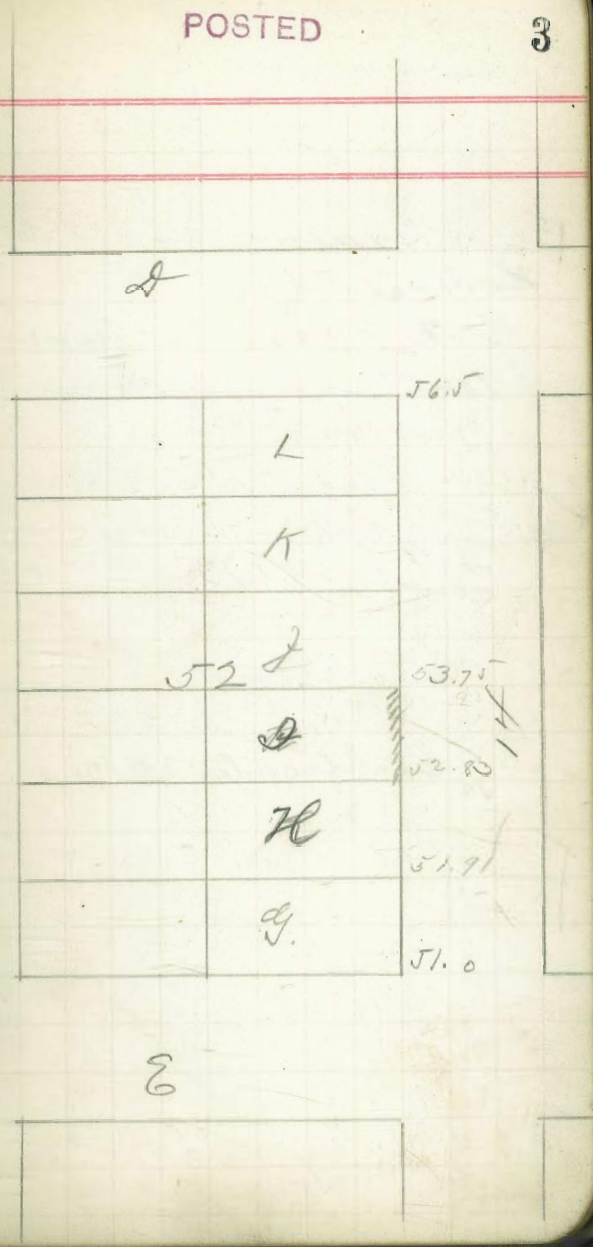 POSTED 3
D
56.5
L
K
J
52
53.75
I
14
52.83
H
51.91
G.
51.0
E